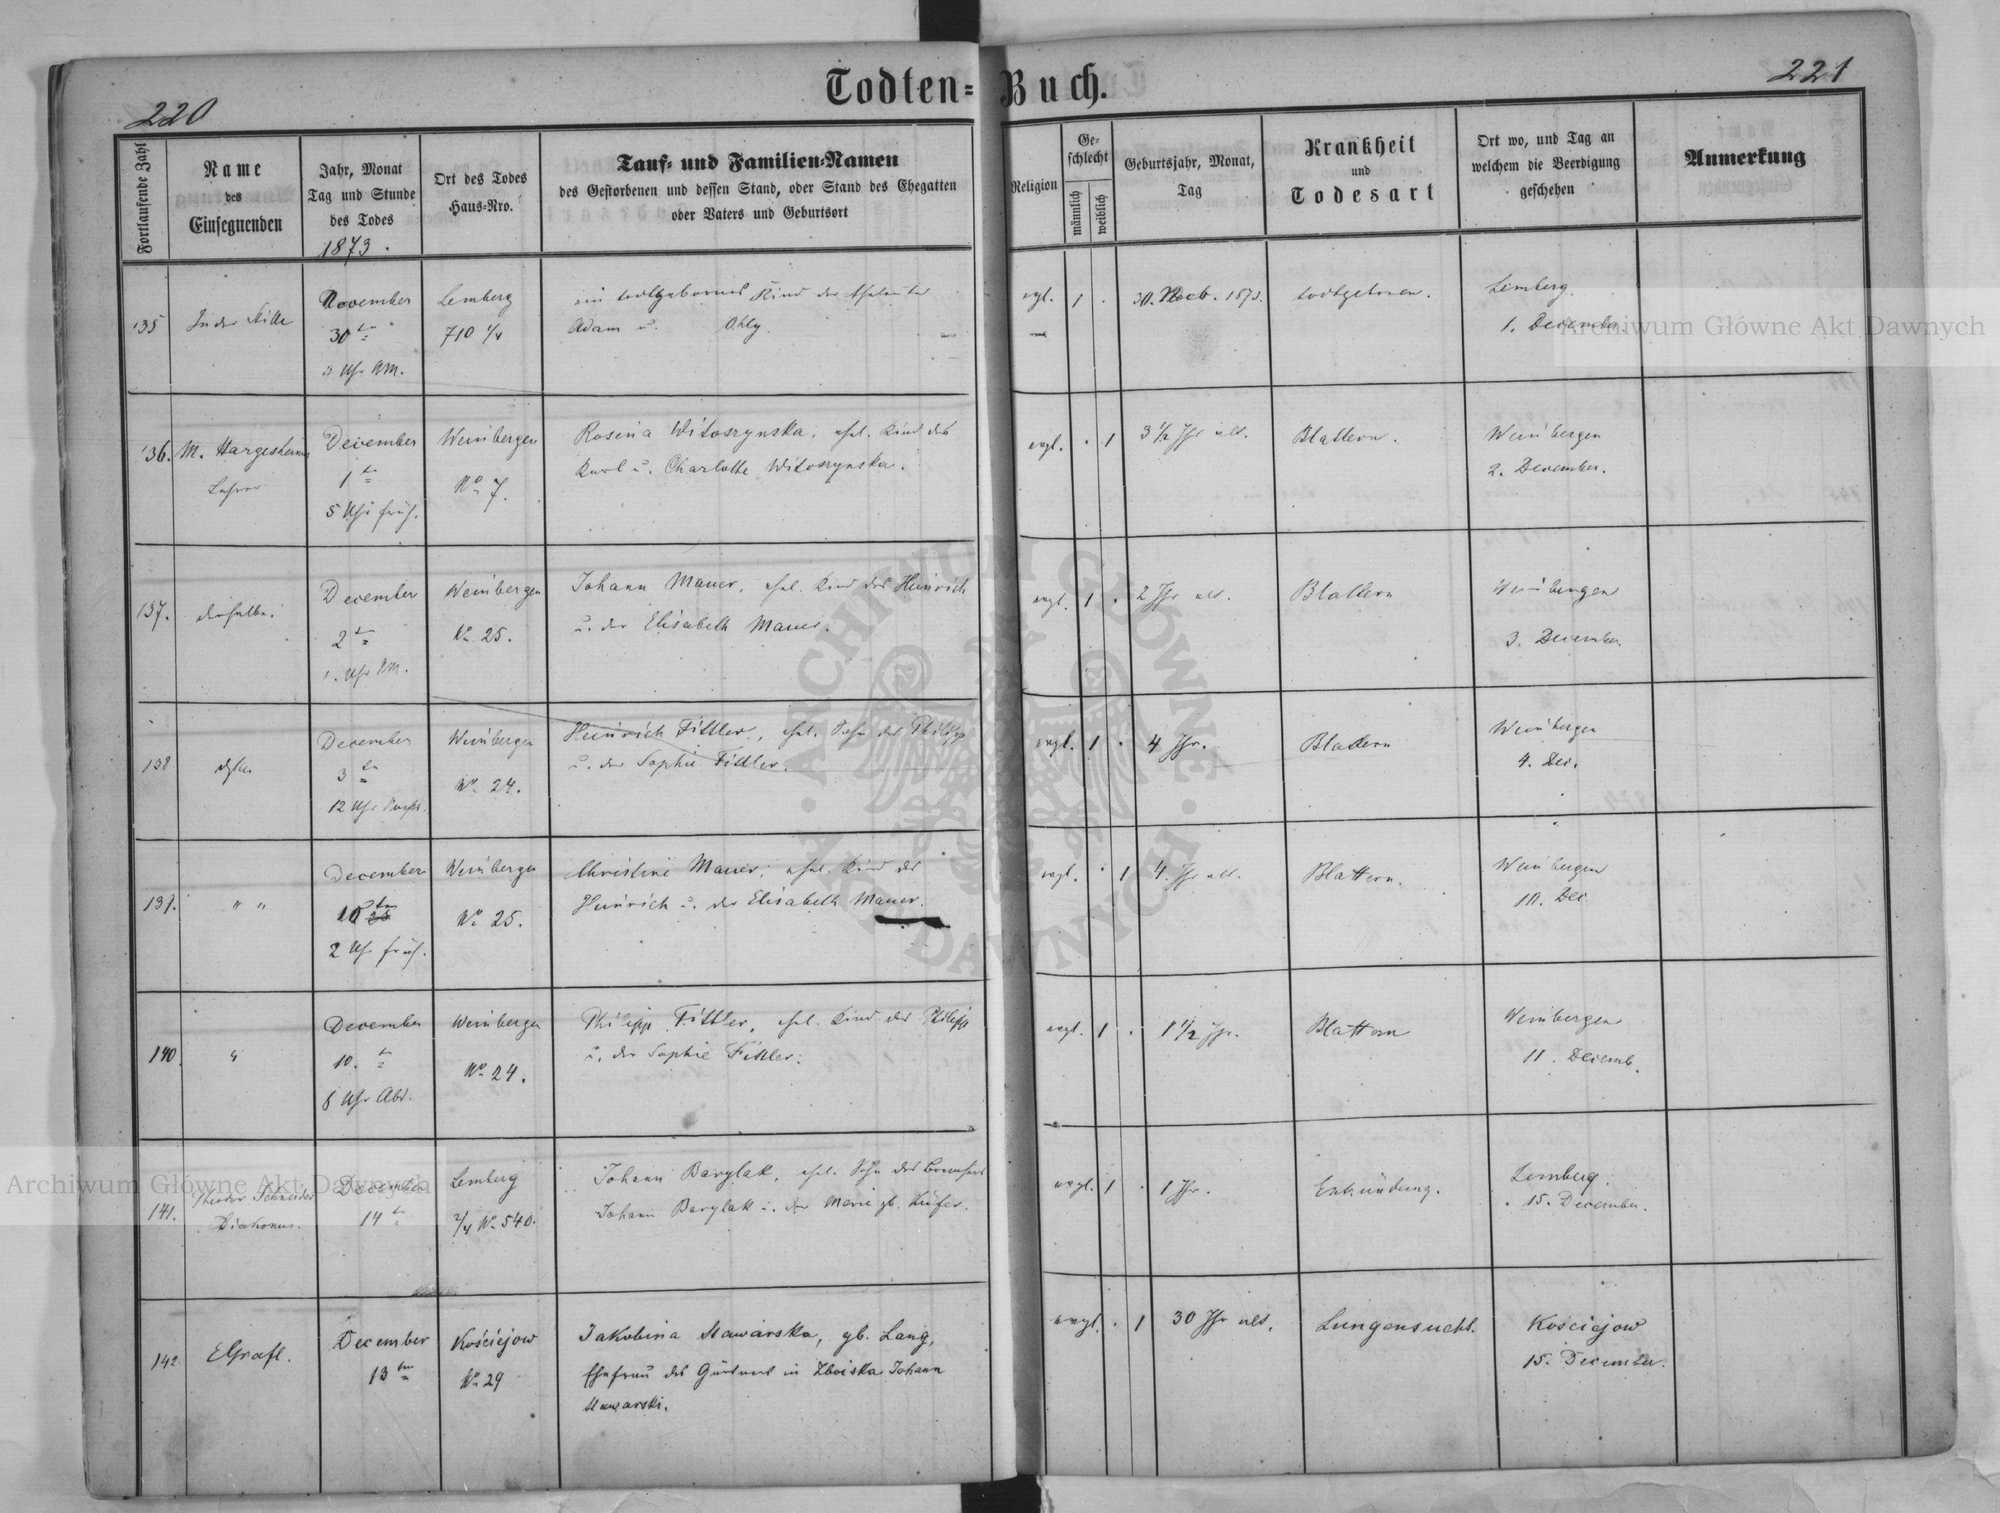 220
Todten-Buch.
221
Fortlaufende Zahl
Name
des
Einsegnenden
Jahr, Monat
Tag und Stunde
des Todes
1873.
Ort des Todes
Haus-Nro.
Tauf- und Familien-Namen
des Gestorbenen und dessen Stand, oder Stand des Ehegatten
oder Vaters und Geburtsort
Religion
Ge-
schlecht
männlich
weiblich
Geburtsjahr, Monat,
Tag
Krankheit
und
Todesart
Ort wo, und Tag an
welchem die Beerdigung
geschehen
Anmerkung
135
In der Stille
November
30
Uhr NM.
Lemberg
710 1/4
ein todtgebornes Kind der Eheleute
Adam u. Ohly.
evgl.
1
30. Novb. 1873.
todtgeboren.
Lemberg
1. December.
136.
M. Hargesheimer
Lehrer
December
1
5 Uhr früh.
Weinbergen
No 7.
Rosina Witoszynska, ehel. Kind des
Karl u. Charlotte Witoszynska.
evgl.
1
3 1/2 Jhr alt.
Blattern.
Weinbergen
2. December.
137.
derselbe.
December
2
1. Uhr NM.
Weinbergen
No 25.
Johann Mauer, ehel. Kind des Heinrich
u. der Elisabeth Mauer.
evgl.
1
2 Jhr alt.
Blattern
Weinbergen
3. December
138
December
3
12 Uhr
Weinbergen
No 24.
Heinrich Fittler, ehel. Sohn des Philipp
u. der Sophie Fittler.
evgl.
1
4 Jhr.
Blattern
Weinbergen
4. Dec.
139.
" "
December
10
2 Uhr früh.
Weinbergen
No 25.
Christine Mauer, ehel. Kind des
Heinrich u. der Elisabeth Mauer.
evgl.
1
4. Jhr alt.
Blattern.
Weinbergen
10. Dec
140.
"
December
10.
8 Uhr Abd.
Weinbergen
No 24.
Philipp Fittler, ehel. Kind des Philipp
u. der Sophie Fittler.
evgl.
1
1 1/2 Jhr.
Blattern
Weinbergen
11. Decemb.
141.
Theodor Schneider
Diakonus.
December
14
Lemberg
2/4 No 540.
Johann Barylak, ehel. Sohn des
Johann Barylak u. der Marie gb. Küfer.
evgl.
1
1 Jhr.
Entzündung.
Lemberg
15. December.
142.
EGrafl.
December
13
Kościejow
No 29
Jakobina Nawarska, gb. Lang,
Ehefrau des Gärtners in Zboiska Johann
Nawarski.
evgl.
1
30 Jhr alt.
Lungensucht.
Kościejow
15. December.
Archiwum Główne Akt Dawnych
Archiwum Główne Akt Dawnych
ARCHIWUM GŁÓWNE · AKT DAWNYCH ·